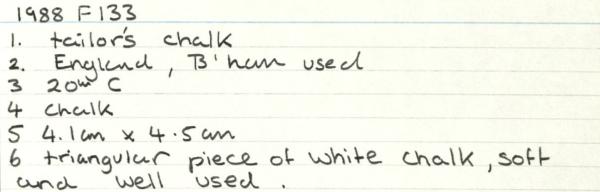 1988 F133
1. tailor's chalk
2. England, B'ham used
3 20th C
4 chalk
5 4.1cm x 4.5cm
6 triangular piece of white chalk, soft
and well used.